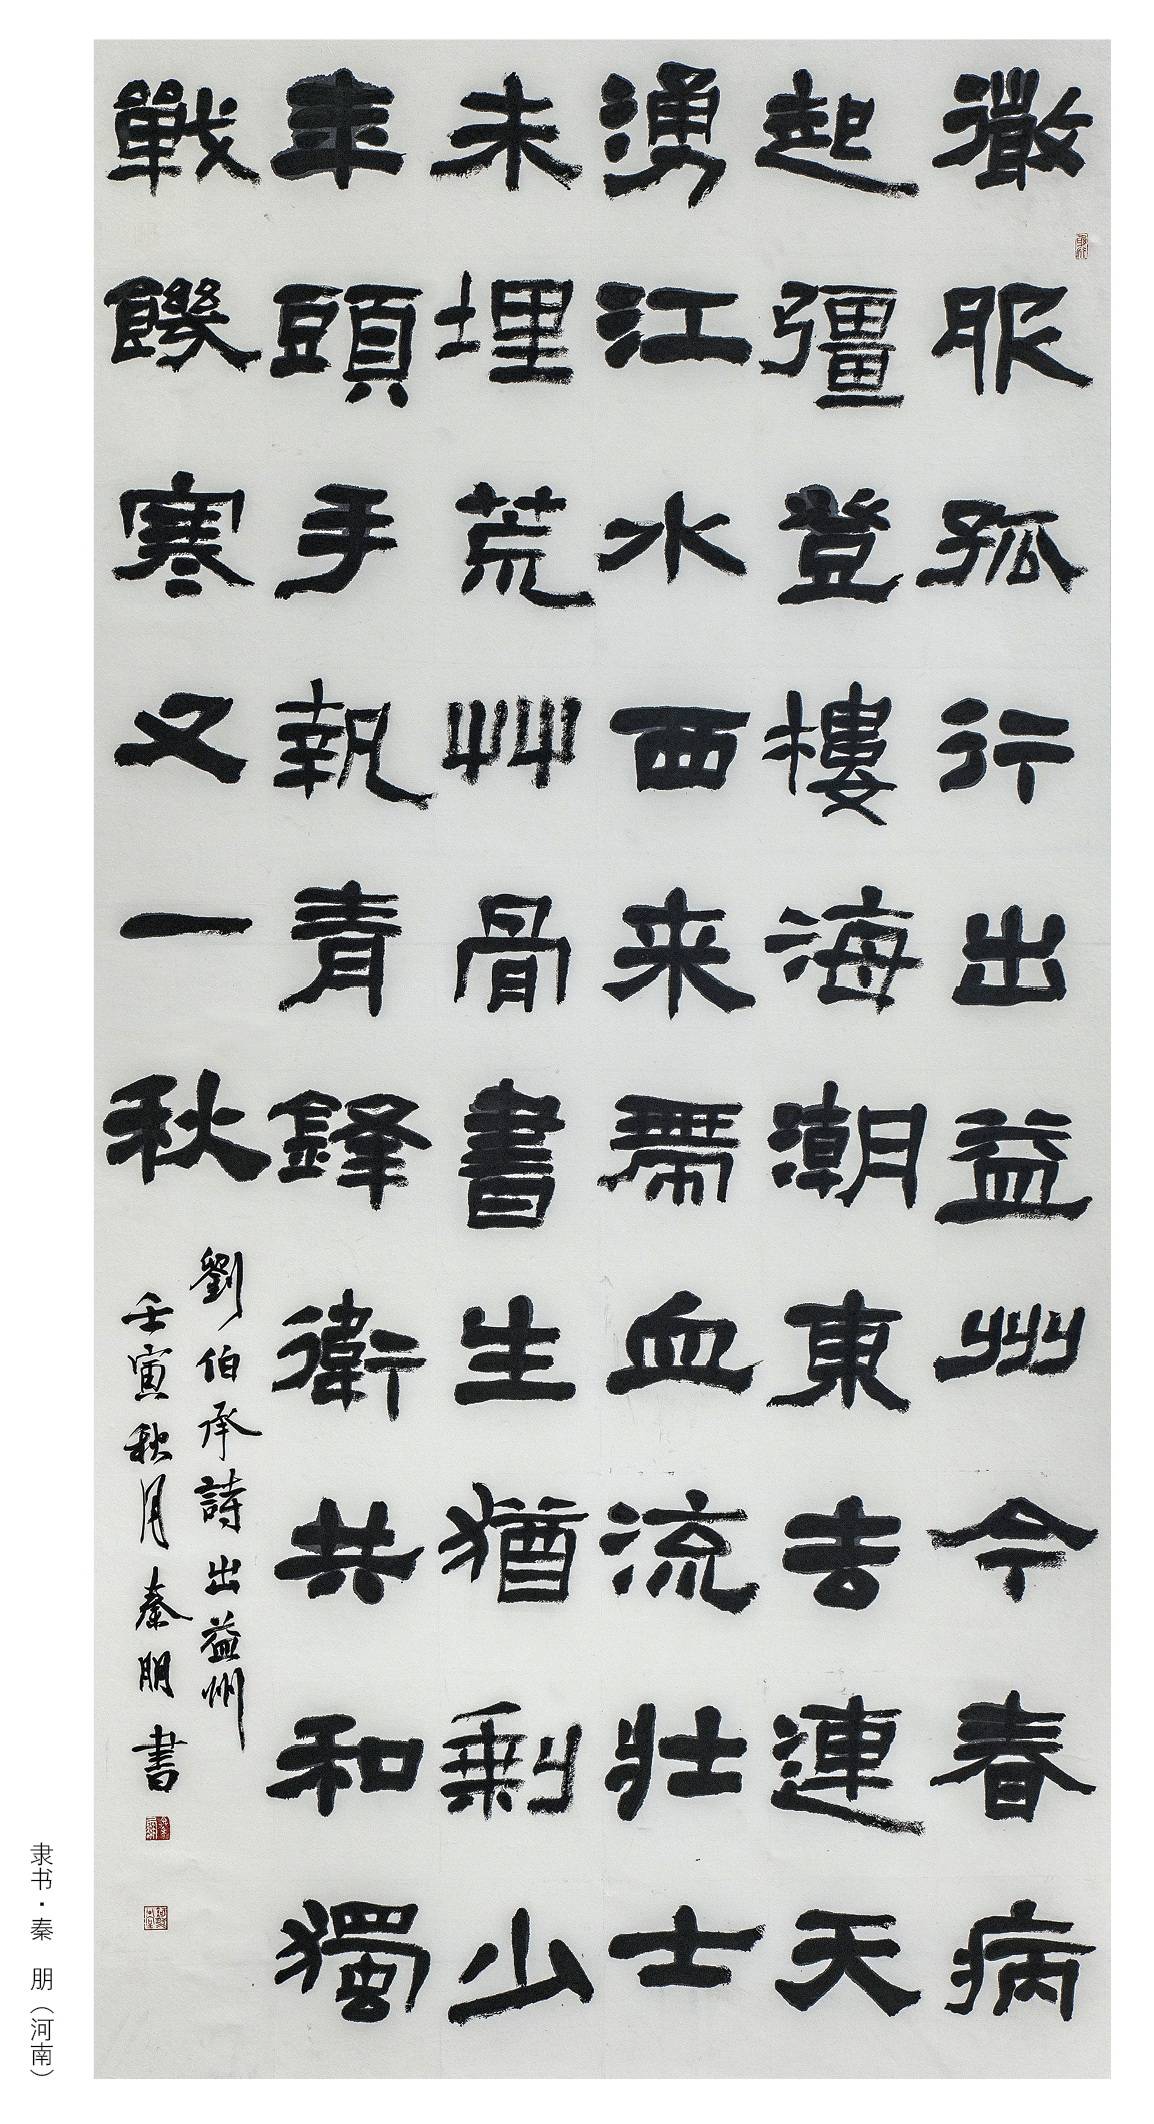 微服孤行出益州今春病
起彊登樓海潮東去連天
湧江水西来帶血流壯士
未埋荒艸骨書生猶剩少
年頭手執青鋒衛共和獨
戰饑寒又一秋
劉伯承詩出益州
壬寅秋月秦朋書
隶书·秦　朋（河南）